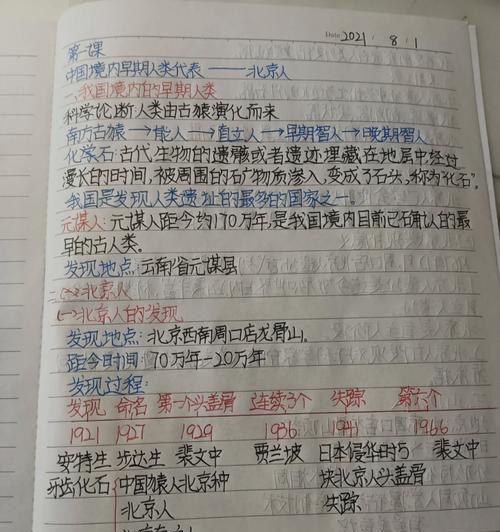 Date 2021 8 1
第一课
中国境内早期人类代表——北京人
一、我国境内的早期人类
科学论断:人类由古猿演化而来
南方古猿→能人→直立人→早期智人→晚期智人
化学石:古代生物的遗骸或者遗迹埋藏在地层中经过
漫长的时间,被周围的石广物质渗入,变成了石头,称为"化石"。
我国是发现人类遗址的最多的国家之一。
元谋人:元谋人距今约170万年,是我国境内目前已确认的最
早的古人类。
发现地点:云南省元谋县
(一)北京人的发现
发现地点:北京西南周口店龙骨山。
距今时间:70万年-20万年
发现过程:
发现 命名 第一个头盖骨 连续3个 失踪 第六个
1921 1927 1929 1936 1941 1966
安特生 步达生 裴文中 贾兰坡 日本侵华时5 裴文中
牙齿化石 中国猿人北京种 块北京人头盖骨
北京人 失踪